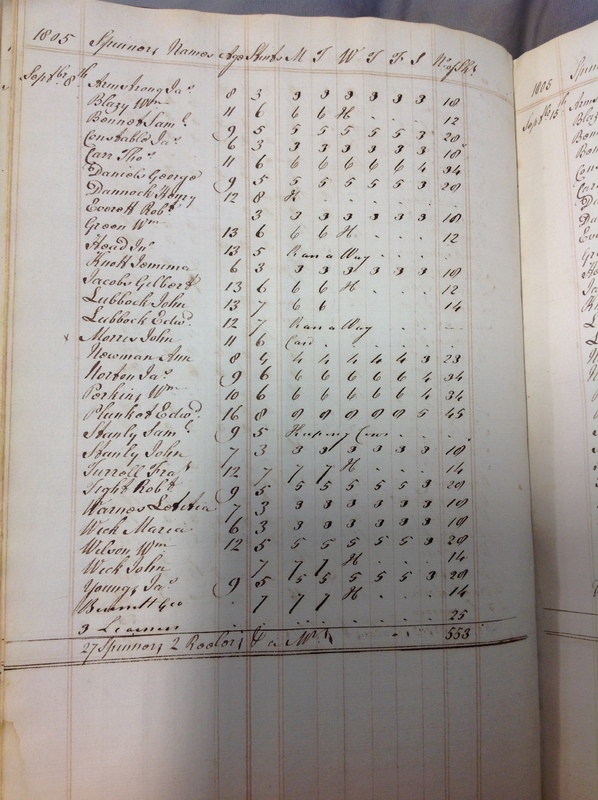 1805 Spinners Names Age Stints M T W T F S No of Sks
Septbr 8th
Armstrong Jas 8 3 3 3 3 3 3 3 18
Blazy Wm 11 6 6 6 H . . . 12
Bennet Saml 9 5 5 5 5 5 5 3 28
Constable Jas 6 3 3 3 3 3 3 3 18
Carr Thos 11 6 6 6 6 6 6 4 34
Daniels George 9 5 5 5 5 5 5 3 28
Dannock Henry 12 8 H . . . . .
Everett Robt 3 3 3 3 3 3 3 18
Green Wm 13 6 6 6 H . . . 12
Head Jno 13 5 Ran a Way . . . .
Knott Jemima 6 3 3 3 3 3 3 3 18
Jacobs Gilbert 13 6 6 6 H . . 12
Lubbock John 13 7 6 6 14
Lubbock Edwd 12 7 Ran a Way . . .
x Morris John 11 6 Card . . . . .
Newman Ann 8 4 4 4 4 4 4 3 23
Norton Jas 9 6 6 6 6 6 6 4 34
Perkins Wm 10 6 6 6 6 6 6 4 34
Plunket Edwd 16 8 8 8 8 8 8 5 45
Stanly Saml 9 5 Keeping Cows . . .
Stanly John 7 3 3 3 3 3 3 3 18
Turrell Fras 12 7 7 7 H . . . 14
Tight Robt 9 5 5 5 5 5 5 3 28
Warnes Letitia 7 3 3 3 3 3 3 3 18
Wick Maria 6 3 3 3 3 3 3 3 18
Wilson Wm 12 5 5 5 5 5 5 3 28
Wick John 7 7 7 H . . . 14
Youngs Jas 9 5 5 5 5 5 5 3 28
Geo . 7 7 7 H . . . 14
3 Learners . . . . . . . . 25
27 Spinners 2 & a 553
1805
Septbr 15th